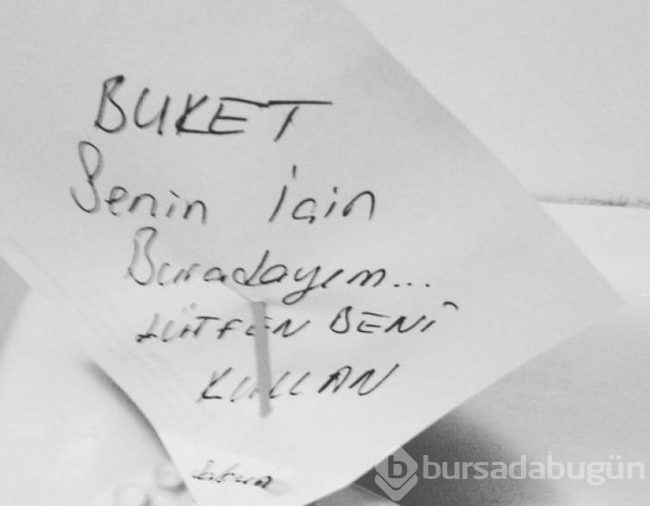 BUKET
Senin İçin
Buradayım...
LÜTFEN BENİ
KULLAN
bursadabugün